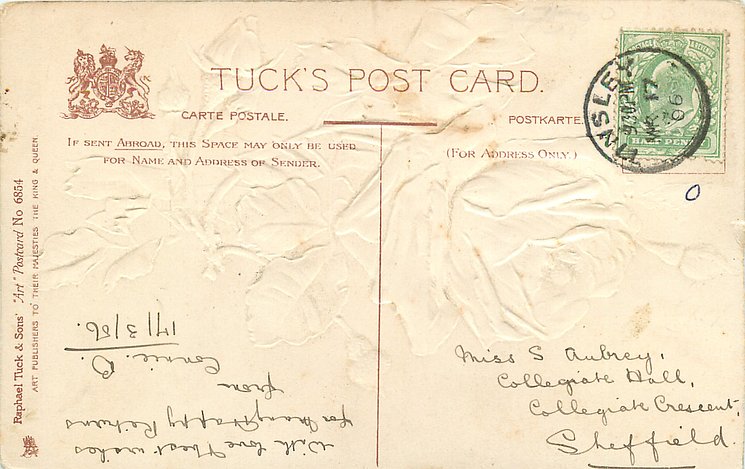 TUCK'S POST CARD.
CARTE POSTALE.
POSTKARTE.
IF SENT ABROAD, THIS SPACE MAY ONLY BE USED
FOR NAME AND ADDRESS OF SENDER.
(FOR ADDRESS ONLY.)
TINSLEY
9.30PM
MR 17
06
HALF PENNY
Raphael Tuck & Sons' "Art" Postcard No 6854
ART PUBLISHERS TO THEIR MAJESTIES THE KING & QUEEN.
With love & best wishes
for many Happy Returns
from
Connie. B.
17/3/06.
Miss S Aubrey,
Collegiate Hall,
Collegiate Crescent,
Sheffield.